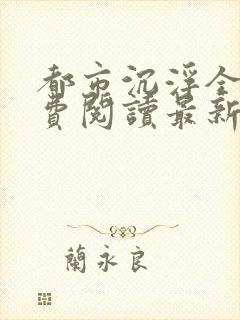 都市沉浮全
費閱讀最新
蘭永良